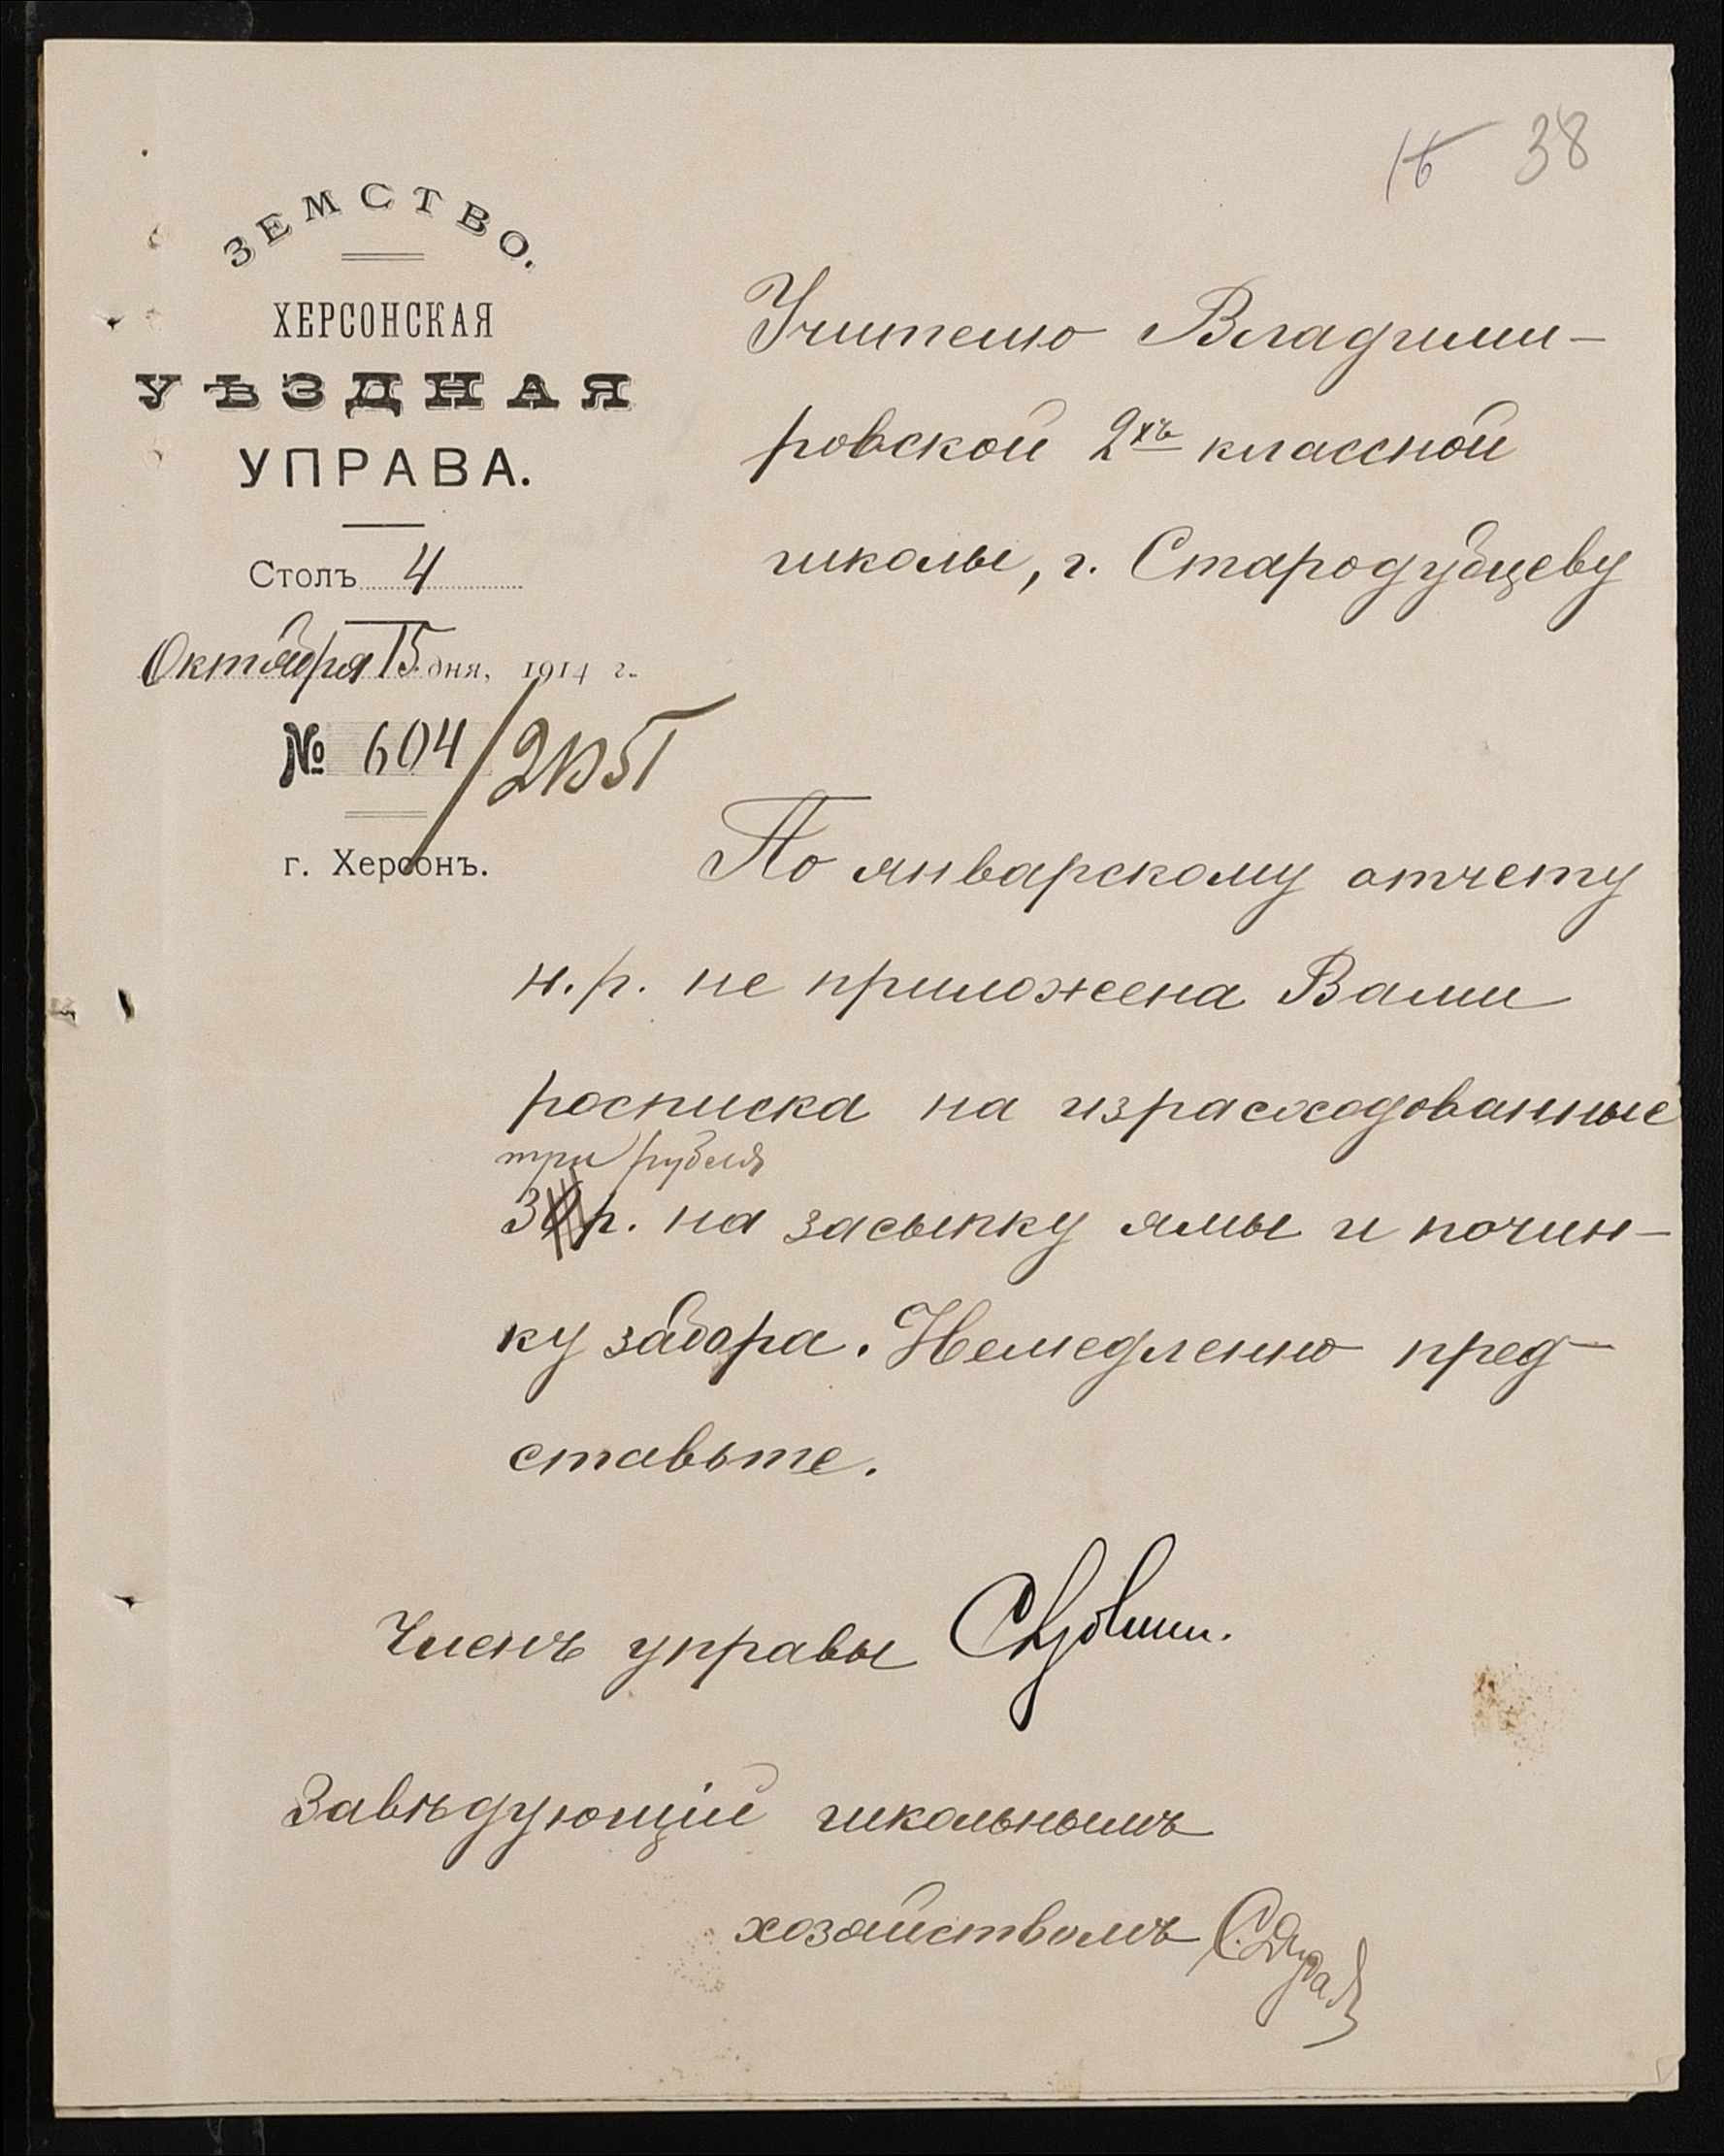 38
ЗЕМСТВО.
ХЕРСОНСКАЯ
УѢЗДНАЯ
УПРАВА.
Столъ 4
Октября 15 дня, 1914 г.
№ 604/
г. Херсонъ.
Учителю Владими-
ровской 2хъ классной
школы, г. Стародубцеву
По январскому отчету
н.р. не приложена Вами
росписка на израсходованные
три рубля
3 р. на засыпку ямы и почин-
ку забора. Немедленно пред-
ставьте.
Членъ управы
Завѣдующій школьнымъ
хозяйствомъ